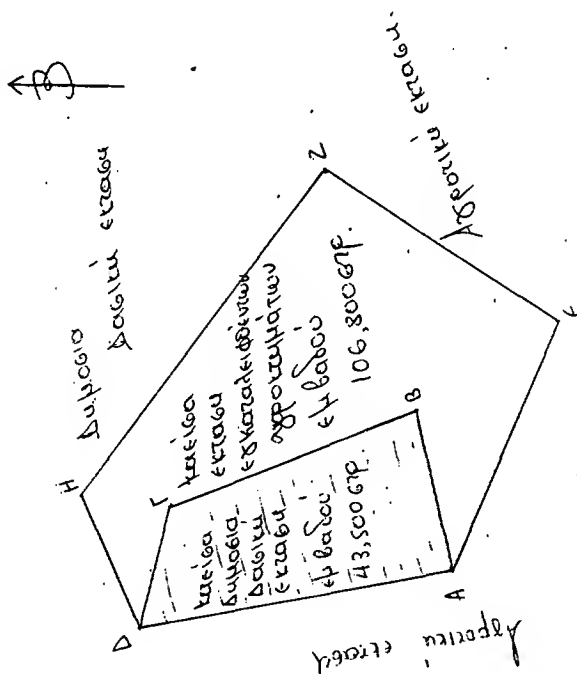 Β
Δημοσια
Δασική εκταση
Η
Ζ
Αγροτική εκταση.
καείσα
εκταση
εγκαταλειφθέντων
αγροκτημάτων
εμβαδού
106,800 στρ.
Γ
καείσα
Δημοσια
Δασική
εκταση
εμβαδού
43,500 στρ.
Β
D
Α
Ε
Αγροτική εκταση